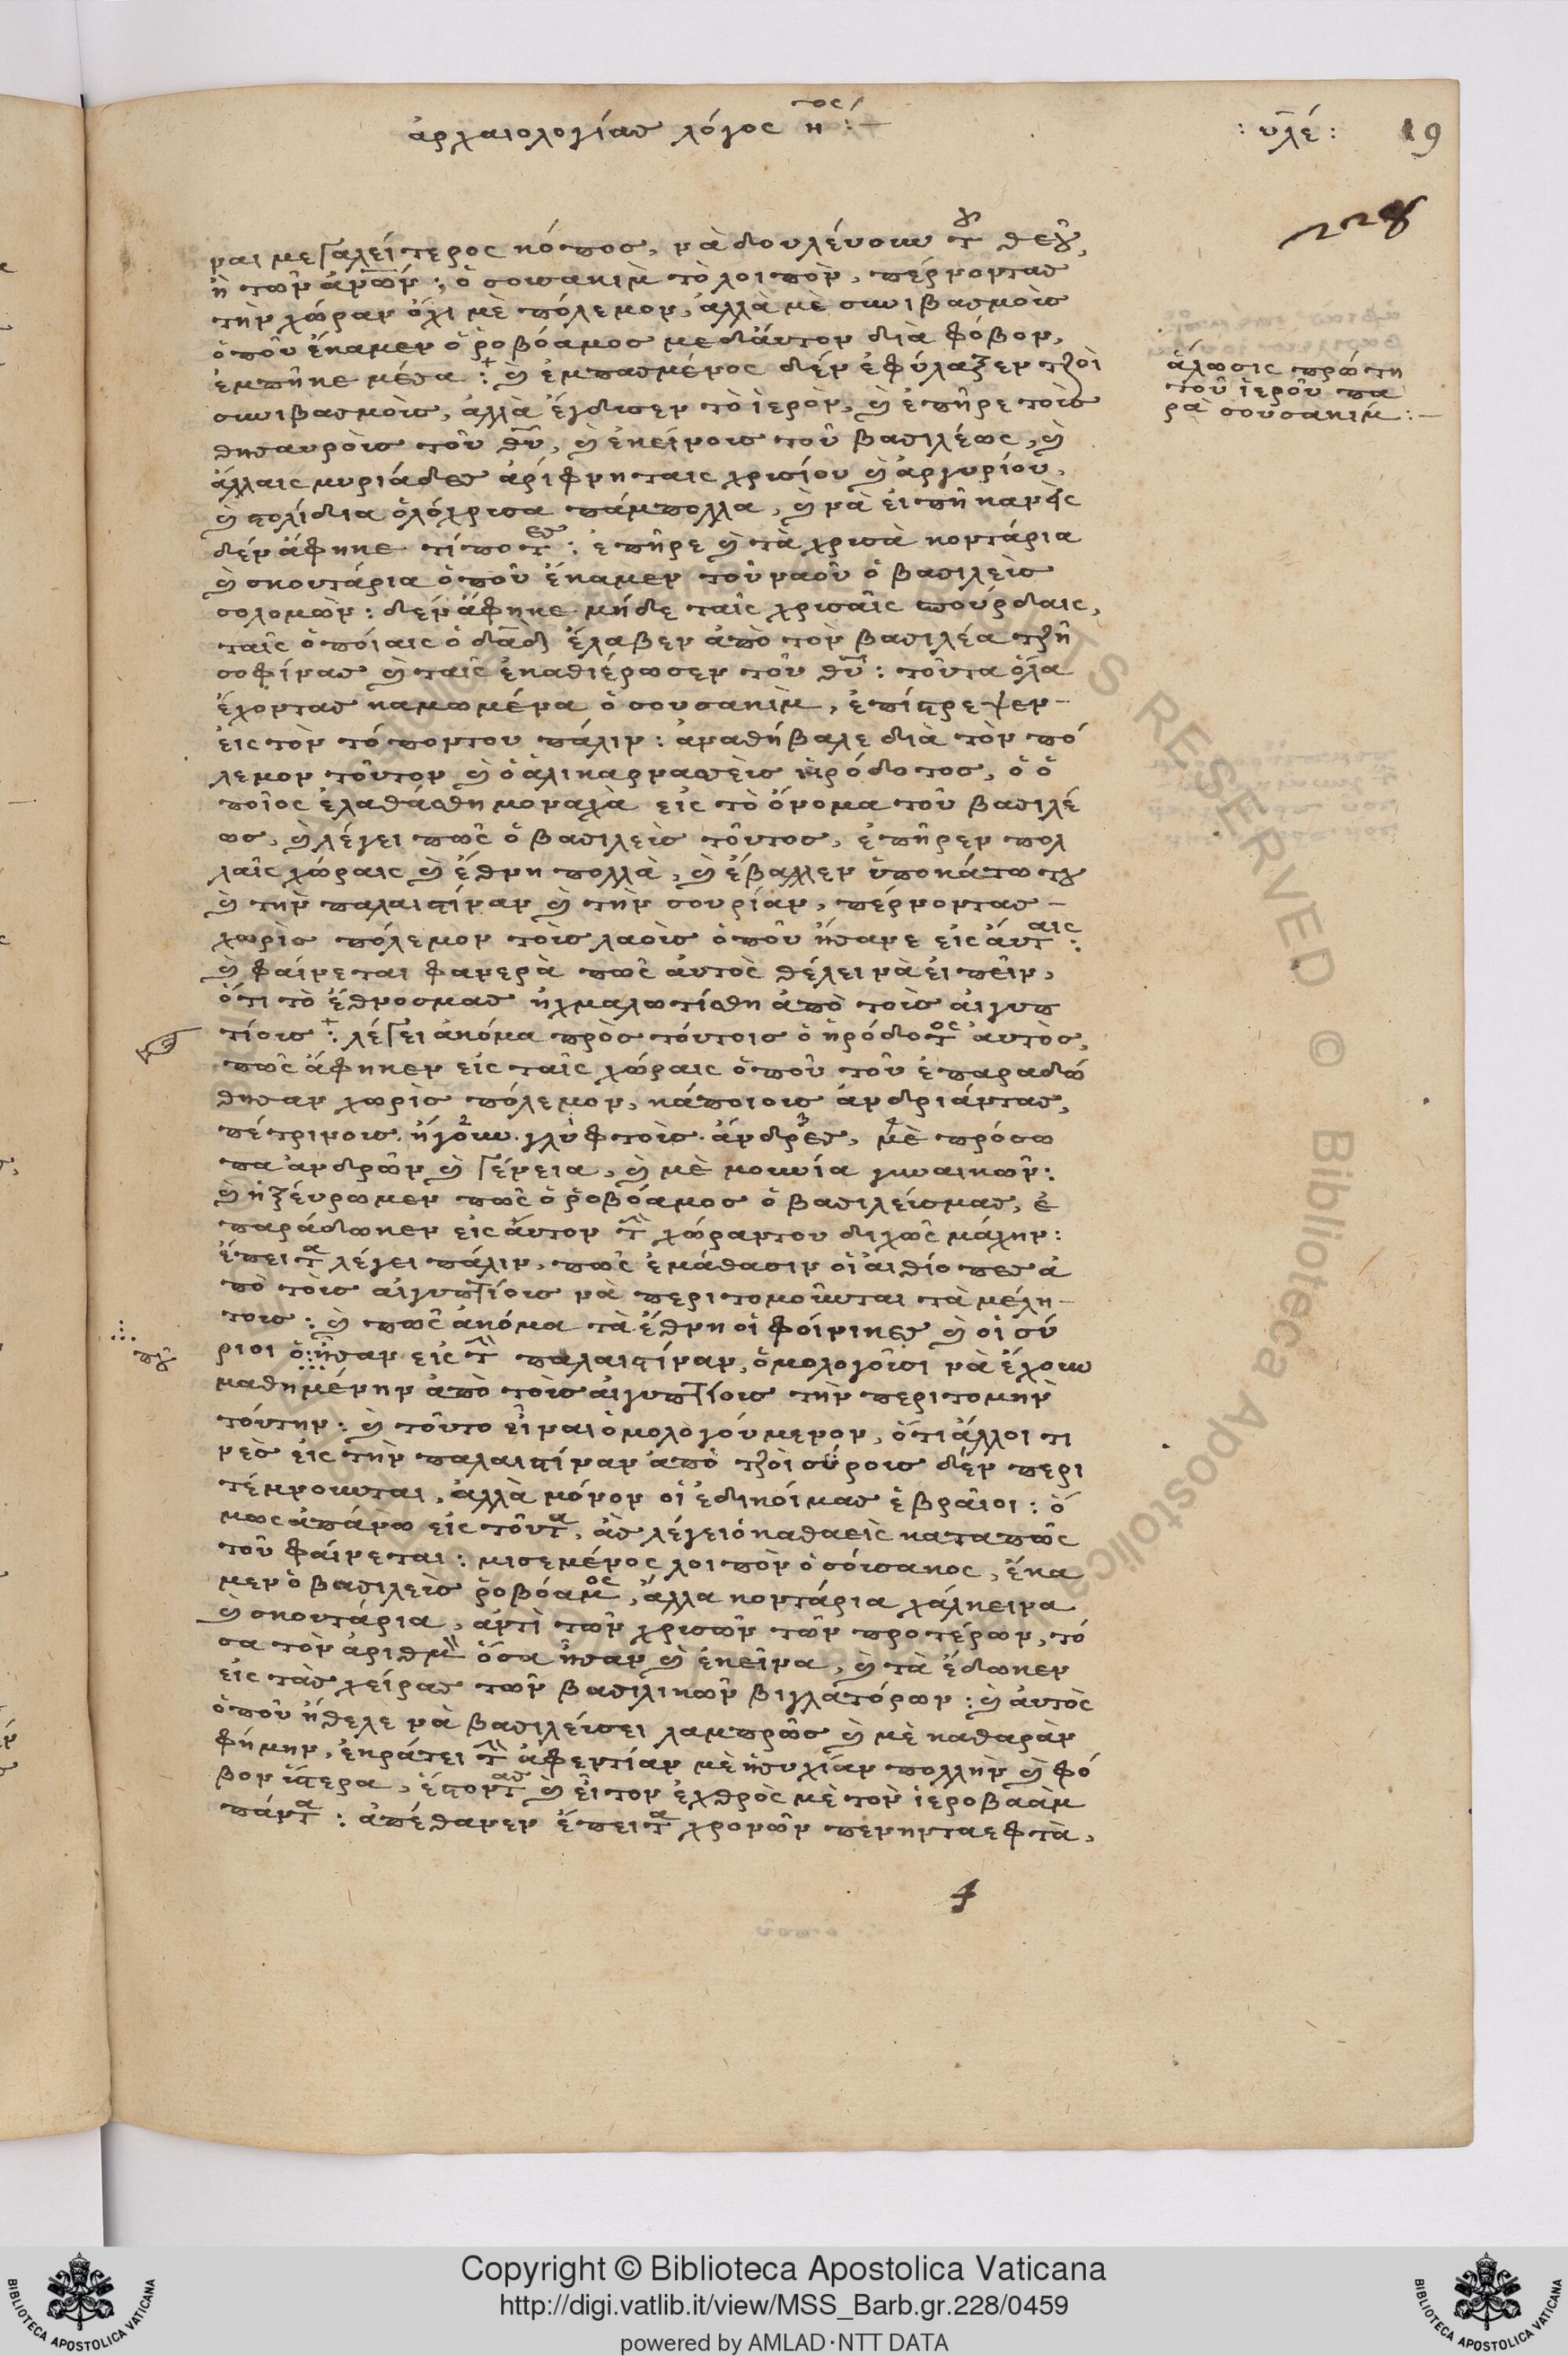 ἀρχαιολογίας λόγος η^ος :—
: υλέ : 19
228
ναι μεγαλείτερος κόπος, νὰ δουλεύσουν τ^ου θεοῦ,
ἢ τῶν ἀν̅ω̅ν : ὁ σουσακὶμ τὸ λοιπὸν, πέρνοντας
τὴν χώραν ὄχι μὲ πόλεμον, ἀλλὰ μὲ συνιβασμοὺς
ὁποῦ ἔκαμεν ὁ ῥοβόαμος μεδάυτον διὰ φόβον,
ἐμπῆκε μέσα : κ̀ ἐμπασμένος δὲν ἐφύλαξεν τζοὶ
συνιβασμοὺς, ἀλλὰ ἔγδυσεν τὸ ἱερὸν, κ̀ ἐπῆρε τοὺς
θησαυροὺς τοῦ θ̅υ̅, κ̀ ἐκείνους τοῦ βασιλέως, κ̀
ἄλλαις μυριάδες ἀρίφνηταις χρισίου κ̀ ἀργυρίου,
κ̀ στολίδια ὁλόχρισα πάμπολλα, κ̀ νὰ εἰπῆ κανεὶς
δὲν ἄφηκε τίποτ^ες : ἐπῆρε κ̀ τὰ χρισὰ κοντάρια
κ̀ σκουτάρια ὁποῦ ἔκαμεν τοῦ ναοῦ ὁ βασιλεὺς
σολομὼν : δὲν ἄφηκε μήδε ταῖς χρισαῖς φούρδαις,
ταῖς ὁποίαις ὁ δ̅α̅δ̅ ἔλαβεν ἀπὸ τὸν βασιλέα τζῆ
σοφίνας κ̀ ταῖς ἐκαθιέρωσεν τοῦ θ̅υ̅ : τοῦτα ὅλα
ἔχοντας καμωμένα ὁ σουσακὶμ, ἐπίστρεψεν
εἰς τὸν τόποντου πάλιν : ἀναθήβαλε διὰ τὸν πό
λεμον τοῦτον κ̀ ὁ ἁλικαρνασεὺς ἡρόδοτος, ὁ ὁ
ποῖος ἐλαθάσθη μοναχὰ εἰς τὸ ὄνομα τοῦ βασιλέ
ως, κ̀ λέγει πῶς ὁ βασιλεὺς τοῦτος, ἐπῆρεν πολ
λαῖς χώραις κ̀ ἔθνη πολλὰ, κ̀ ἔβαλλεν ὑποκάτω του
κ̀ τὴν παλαιστίναν κ̀ τὴν σουρίαν, πέρνοντας
χωρὶς πόλεμον τοὺς λαοὺς ὁποῦ ἤσανε εἰς ἀυτ^αις :
κ̀ φαίνεται φανερὰ πῶς ἀυτὸς θέλει νὰ εἰπεῖν,
ὅτι τὸ ἔθνοσμας ἠχμαλωτίσθη ἀπὸ τοὺς αἰγυπ
τίους : λέγει ἀκόμα πρὸς τούτοις ὁ ἡρόδοτ^ος ἀυτὸς,
πῶς ἄφηκεν εἰς ταῖς χώραις ὁποῦ τοῦ ἐπαραδώ
θησαν χωρὶς πόλεμον, κάποιους ἀνδριάντας,
πέτρινους ἤγουν γλυφτοὺς ἄνδρες, μὲ πρόσω
πα ἀνδρῶν κ̀ γένεια, κ̀ μὲ μουνία γυναικῶν :
κ̀ ἠξεύρωμεν πῶς ὁ ῥοβόαμος ὁ βασιλεύσμας, ἐ
παράδωκεν εἰς ἀυτον τ^ὴν χώραντου διχῶς μάχην :
ἔπειτ^α λέγει πάλιν, πῶς ἐμάθασιν οἱ αἰθίοπες ἀ
πὸ τοὺς αἰγυπτίους νὰ περιτομοῦνται τὰ μέλη
τους : κ̀ πῶς ἀκόμα τὰ ἔθνη οἱ φοίνικες κ̀ οἱ σύ
ριοι ὁ ἦσαν εἰς τ^ὴν παλαιστίναν, ὁμολογοῦσι νὰ ἔχουν
μαθημένην ἀπὸ τοὺς αἰγυπτίους τὴν περιτομὴν
τούτην : κ̀ τοῦτο εἶναι ὁμολογούμενον, ὅτι ἄλλοι τι
νὲς εἰς τὴν παλαιστίναν ἀπὸ τζοὶ σύρους δὲν περι
τέμνουνται, ἀλλὰ μόνον οἱ ἐδικοίμας ἑβραῖοι : ὅ
μως ἀπάνω εἰς τοῦτ^α, ἂς λέγει ὁ καθαεὶς καταπῶς
τοῦ φαίνεται : μισεμένος λοιπὸν ὁ σούσακος, ἔκα
μεν ὁ βασιλεὺς ῥοβόαμ^ος, ἄλλα κοντάρια χάλκεινα
κ̀ σκουτάρια, ἀντὶ τῶν χρισῶν τῶν προτέρων, τό
σα τὸν ἀριθμ^ὸν ὅσα ἦσαν κ̀ ἐκεῖνα, κ̀ τὰ ἔδωκεν
εἰς τὰς χεῖρας τῶν βασιλικῶν βιγλατόρων : κ̀ ἀυτὸς
ὁποῦ ἤθελε νὰ βασιλεύσει λαμπρῶς κ̀ μὲ καθαρὰν
φήμην, ἐκράτει τ^ὴν ἀφεντίαν μὲ ἡσυχίαν πολλὴν κ̀ φό
βον ὕστερα, ἔστοντ^ας κ̀ εἶτον ἐχθρὸς μὲ τὸν ἱεροβαὰμ
πάντ^α : ἀπέθανεν ἔπειτ^α χρονῶν πενηνταεφτὰ,
ἅλωσις πρώτη
τοῦ ἱεροῦ πα
ρὰ σουσακὶμ :—
Copyright © Biblioteca Apostolica Vaticana
http://digi.vatlib.it/view/MSS_Barb.gr.228/0459
powered by AMLAD·NTT DATA
BIBLIOTECA APOSTOLICA VATICANA
BIBLIOTECA APOSTOLICA VATICANA